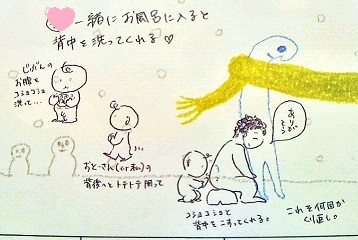 一緒にお風呂に入ると
背中を洗ってくれる♡
じぶんの
お腹を
コショコショ
洗って…
おとーさん(or私)の
背後へとトテトテ周って
ありがとう
コショコショと
背中をこすってくれる。
これを何回か
くり返し。